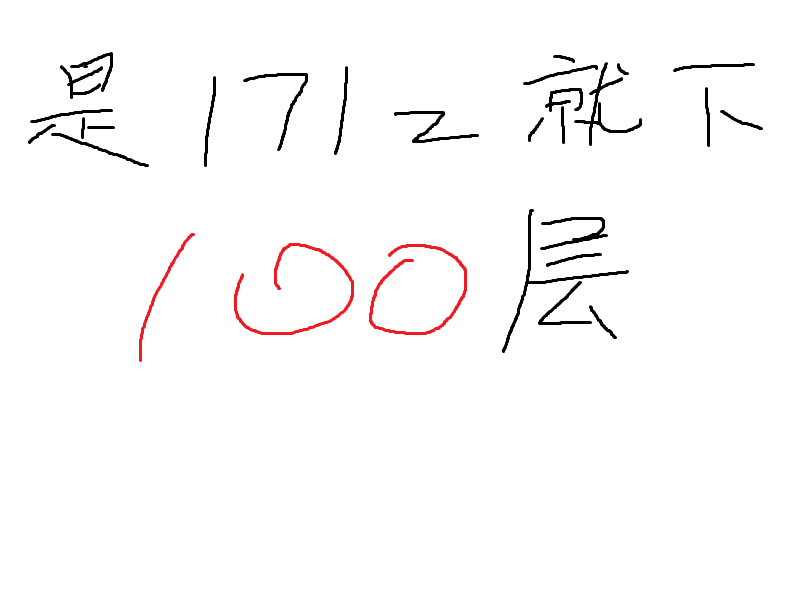 是1712就下
100层